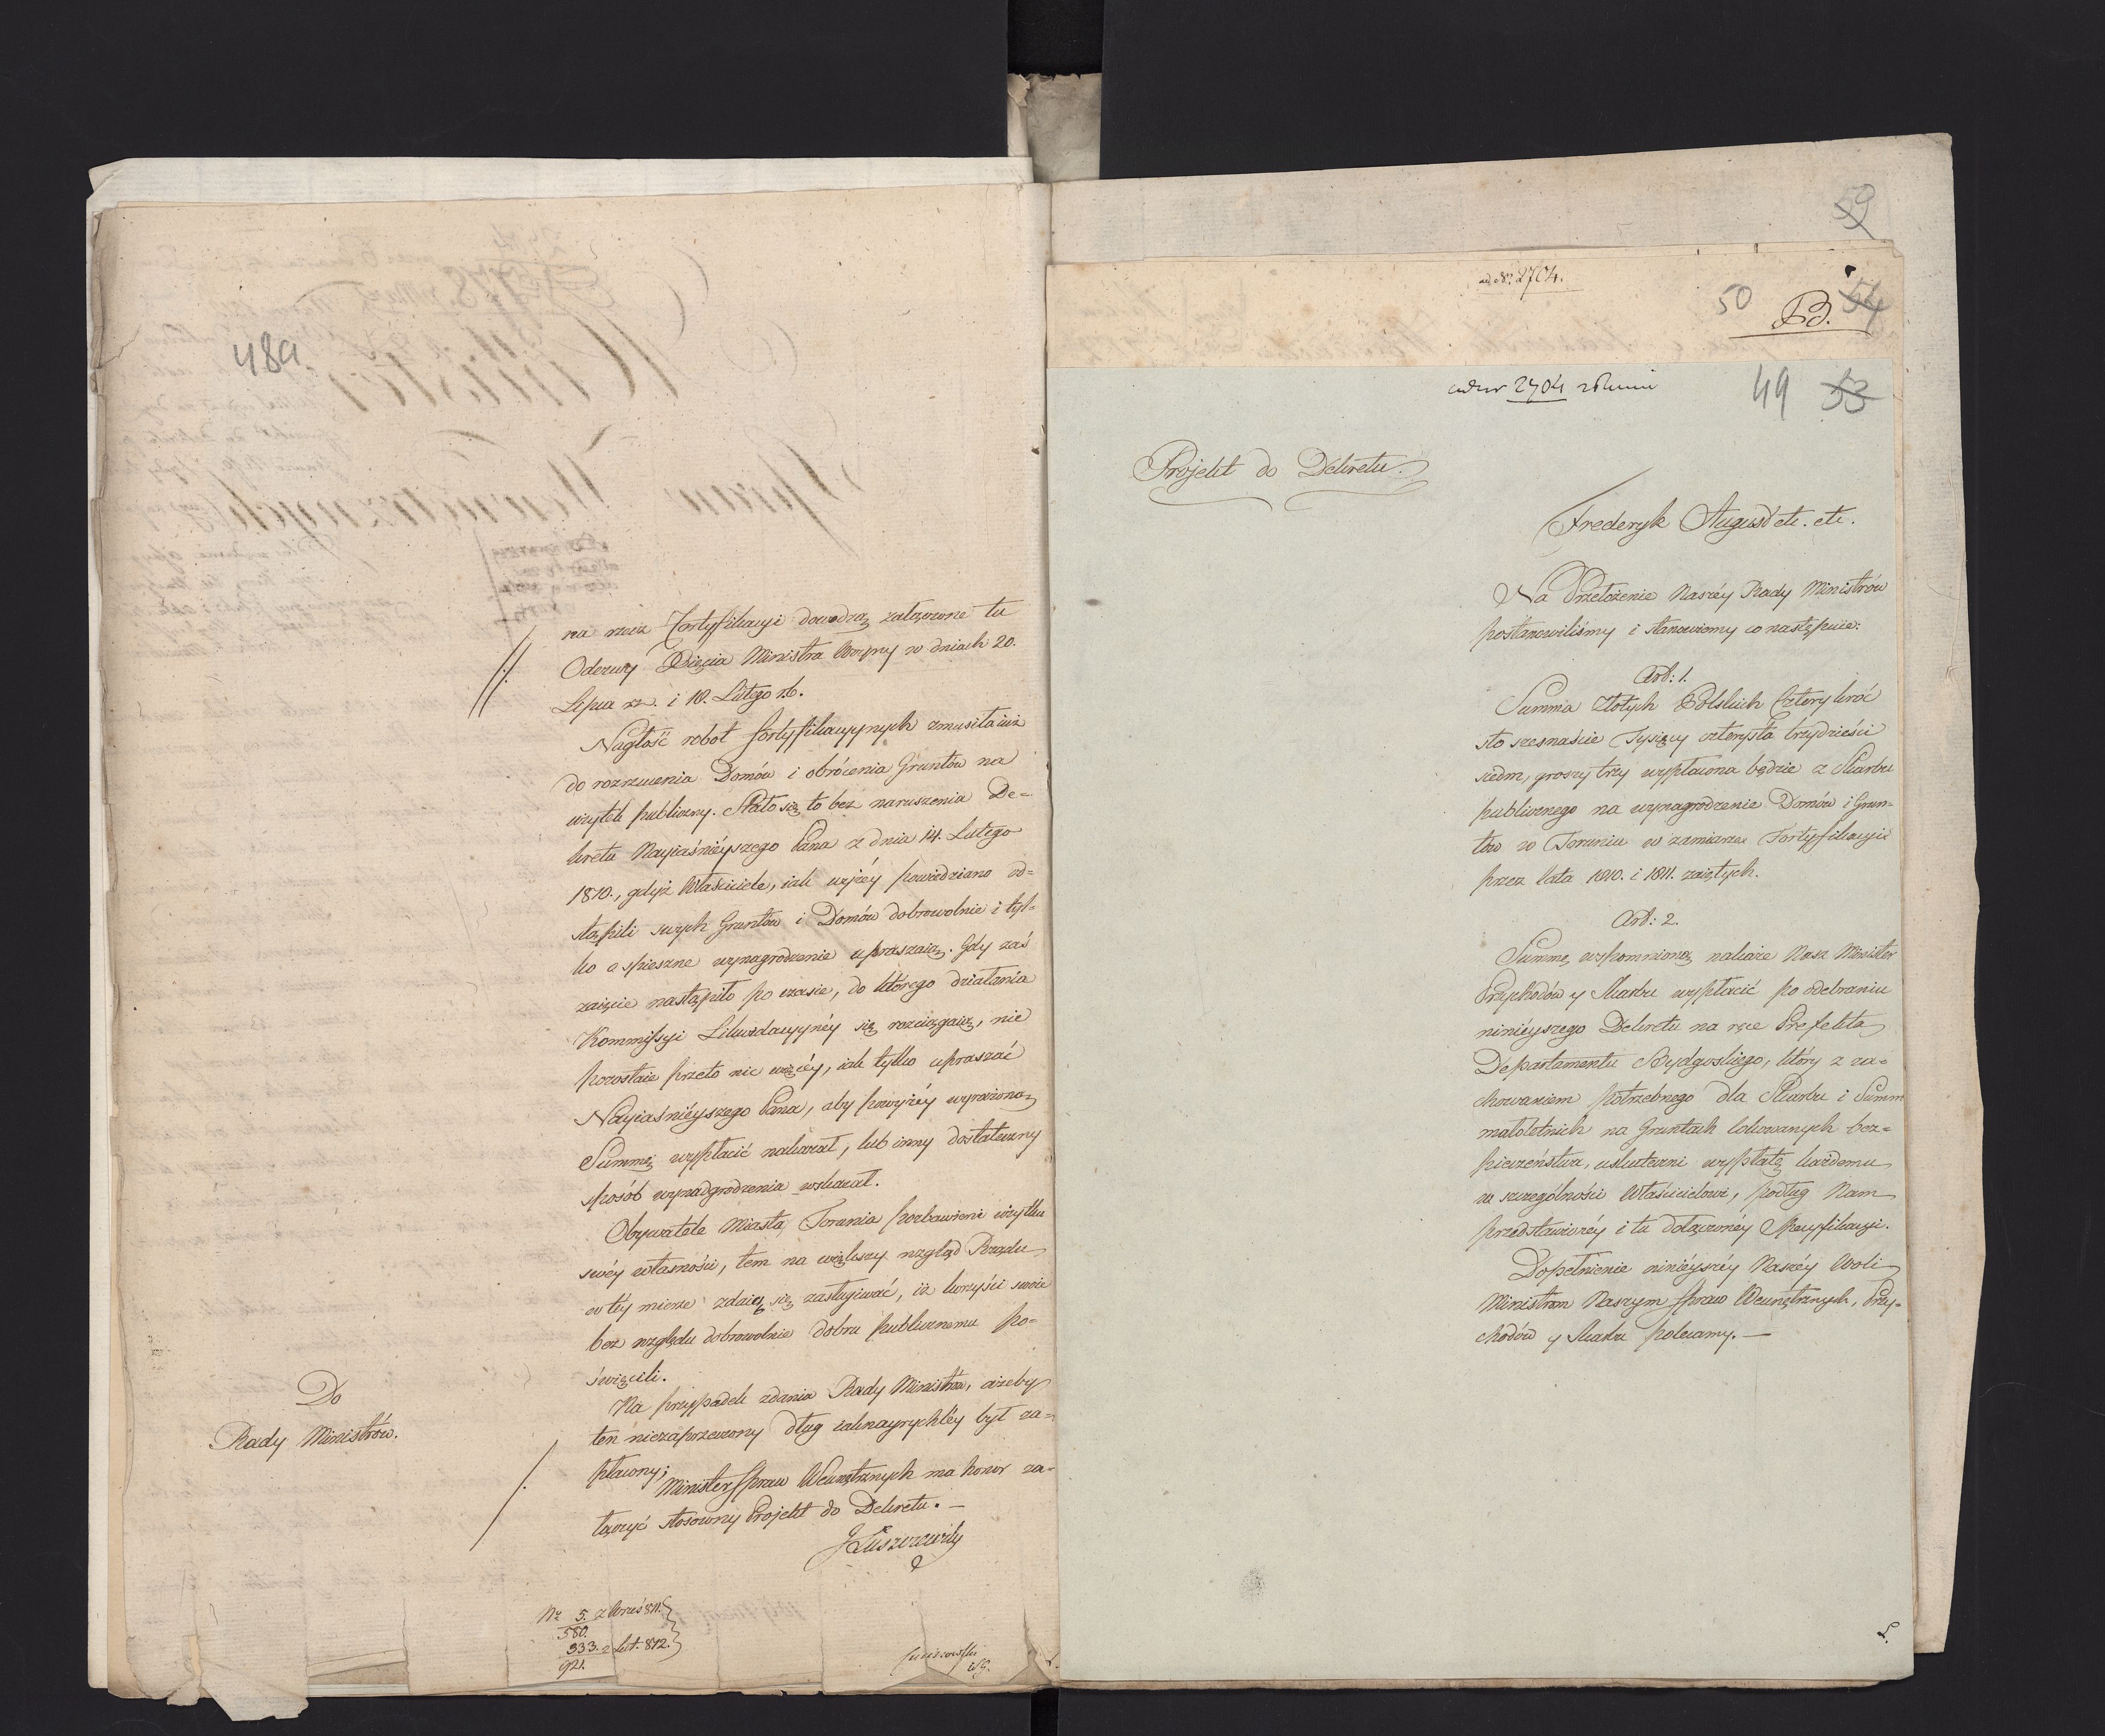 48a
na rzecz Fortyfikacyi dowodzą załączone tu
Odezwy Xięcia Ministra Woyny w dniach 20.
Lipca rz. i 10. Lutego rb.
Nagłość robot fortyfikacyynych zmusiła iuż
do rozrzucenia Domów i obrócenia Gruntów na
użytek publiczny. Stało się to bez naruszenia De=
kretu Nayiaśnieyszego Pana z dnia 14. Lutego
1810., gdyż Właściciele, iak wyżey powiedziano od=
stąpili swych Gruntów i Domów dobrowolnie i tyl=
ko o spieszne wynagrodzenie upraszaią. Gdy zaś
zaięcie nastąpiło po czasie, do którego działania
Kommissyi Likwidacyyney się rozciągaią, nie
pozostaie przeto nic więcéy, iak tylko upraszać
Nayiaśnieyszego Pana, aby powyżéy wyrażoną
Summę wypłacić nakazał, lub inny dostateczny
sposób wynadgrodzenia wskazał.
Obywatele Miasta Torunia pozbawieni użytku
swéy własności, tem na większy wzgląd Rządu
w téy mierze zdaią się zasługiwać, iż korzyści swoie
bez względu dobrowolnie dobru publicznemu po=
święcili.
Na przypadek zdania Rady Ministrów, ażeby
ten niezaprzeczony dług iaknayrychléy był za=
płacony; Minister Spraw Wewnętrznych ma honor za=
łączyć stosowny Projekt do Dekretu. —
Do
Rady Ministrów.
JŁuszczewsky
No 5. z Wrześ 811.
580.
333. z Lut. 812.
921.
59
ad No 2704.
50 54
B.
2704
49 53
Projekt do Dekretu.
Frederyk August etc. etc.
Na Przełożenie Naszéy Rady Ministrów
postanowiliśmy i stanowiemy co następuie:
Art: 1.
Summa Złotych Polskich Czterykroć
sto szesnaście Tysięcy czterysta trzydzieści
siedm, groszy trzy wypłacona będzie z Skarbu
publicznego na wynagrodzenie Domów i Grun=
tów w Toruniu w zamiarze Fortyfikacyi
przez lata 1810. i 1811. zaiętych.
Art: 2.
Summę wspomnioną nakaże Nasz Minister
Przychodów y Skarbu wypłacić po odebraniu
ninieyszego Dekretu na ręce Prefekta
Departamentu Bydgoskiego, który z za=
chowaniem potrzebnego dla Skarbu i Summ
małoletnich na Gruntach lokowanych bez=
pieczeństwa, uskuteczni wypłatę każdemu
w szczególności Właścicielowi, podług Nam
przedstawionéy i tu dołączonéy Specyfikacyi.
Dopełnienie ninieyszéy Naszéy Woli
Ministrom Naszym Spraw Wewnętrznych, Przy=
chodów y Skarbu polecamy. —